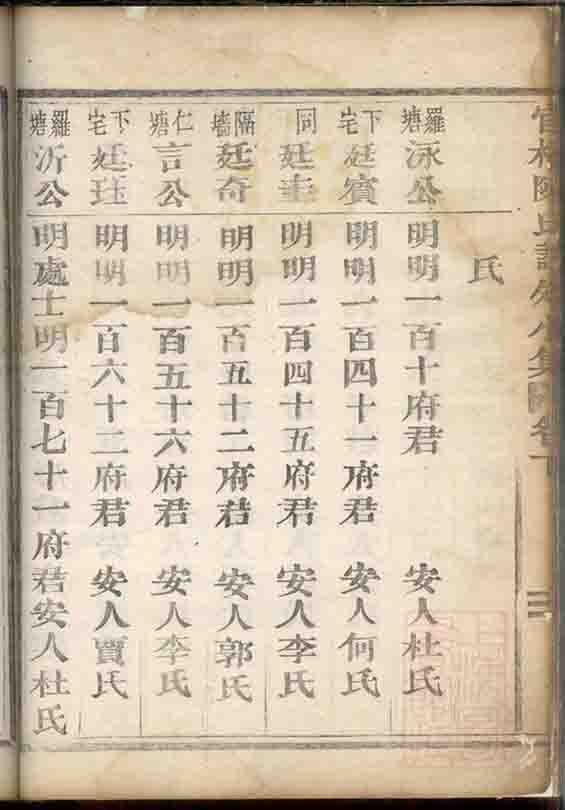 氏
羅塘 泳公 明明一百十府君 安人杜氏
下宅 廷賓 明明一百四十一府君 安人何氏
同 廷圭 明明一百四十五府君 安人李氏
隔墻 廷奇 明明一百五十二府君 安人郭氏
仁塘 言公 明明一百五十六府君 安人李氏
下宅 廷珏 明明一百六十二府君 安人賈氏
羅塘 沂公 明處士明一百七十一府君安人杜氏